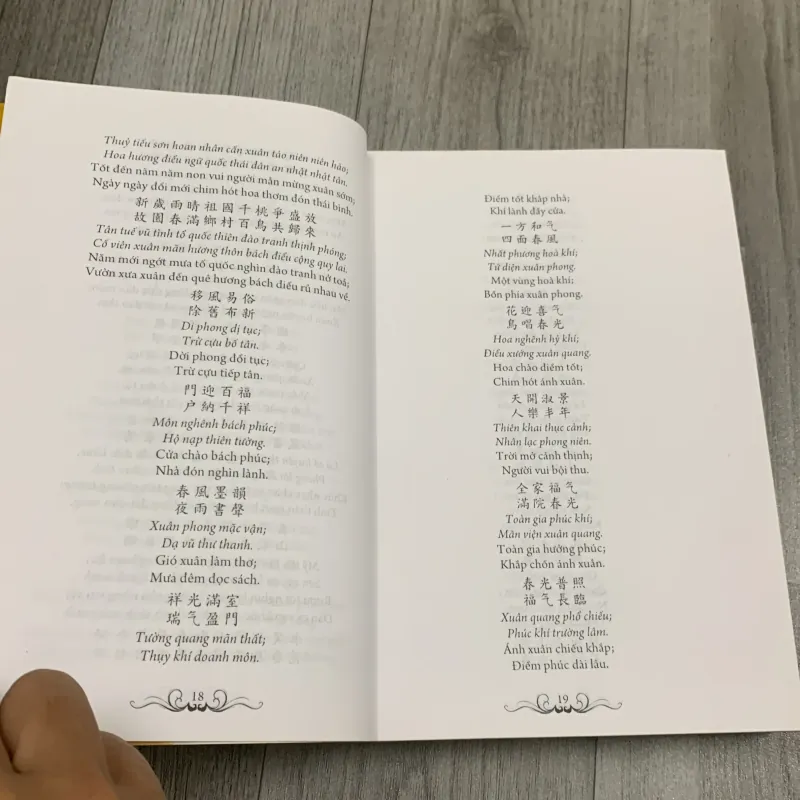 Thuỷ tiếu sơn hoan nhân cấn xuân tảo niên niên hảo;
Hoa hương điểu ngữ quốc thái dân an nhật nhật tân.
Tốt đến năm năm non vui người mần mừng xuân sớm;
Ngày ngày đổi mới chim hót hoa thơm đón thái bình.
新歲雨晴祖國千桃爭盛放
故園春滿鄉村百鳥共歸來
Tân tuế vũ tình tổ quốc thiên đào tranh thịnh phóng;
Cố viên xuân mãn hương thôn bách điểu cộng quy lai.
Năm mới ngớt mưa tổ quốc nghìn đào tranh nở toả;
Vườn xưa xuân đến quê hương bách điểu rủ nhau về.
移風易俗
除舊布新
Di phong dị tục;
Trừ cựu bố tân.
Dời phong đổi tục;
Trừ cựu tiếp tân.
門迎百福
户納千祥
Môn nghênh bách phúc;
Hộ nạp thiên tường.
Cửa chào bách phúc;
Nhà đón nghìn lành.
春風墨韻
夜雨書聲
Xuân phong mặc vận;
Dạ vũ thư thanh.
Gió xuân làm thơ;
Mưa đêm đọc sách.
祥光滿室
瑞气盈門
Tường quang mãn thất;
Thụy khí doanh môn.
18
Điềm tốt khắp nhà;
Khí lành đầy cửa.
一方和气
四面春風
Nhất phương hoà khí;
Tứ diện xuân phong.
Một vùng hoà khí;
Bốn phía xuân phong.
花迎喜气
鳥唱春光
Hoa nghênh hỷ khí;
Điểu xướng xuân quang.
Hoa chào điềm tốt;
Chim hót ánh xuân.
天開淑景
人樂丰年
Thiên khai thục cảnh;
Nhân lạc phong niên.
Trời mở cảnh thịnh;
Người vui bội thu.
全家福气
滿院春光
Toàn gia phúc khí;
Mãn viện xuân quang.
Toàn gia hưởng phúc;
Khắp chốn ánh xuân.
春光普照
福气長臨
Xuân quang phổ chiếu;
Phúc khí trường lâm.
Ánh xuân chiếu khắp;
Điềm phúc dài lâu.
19